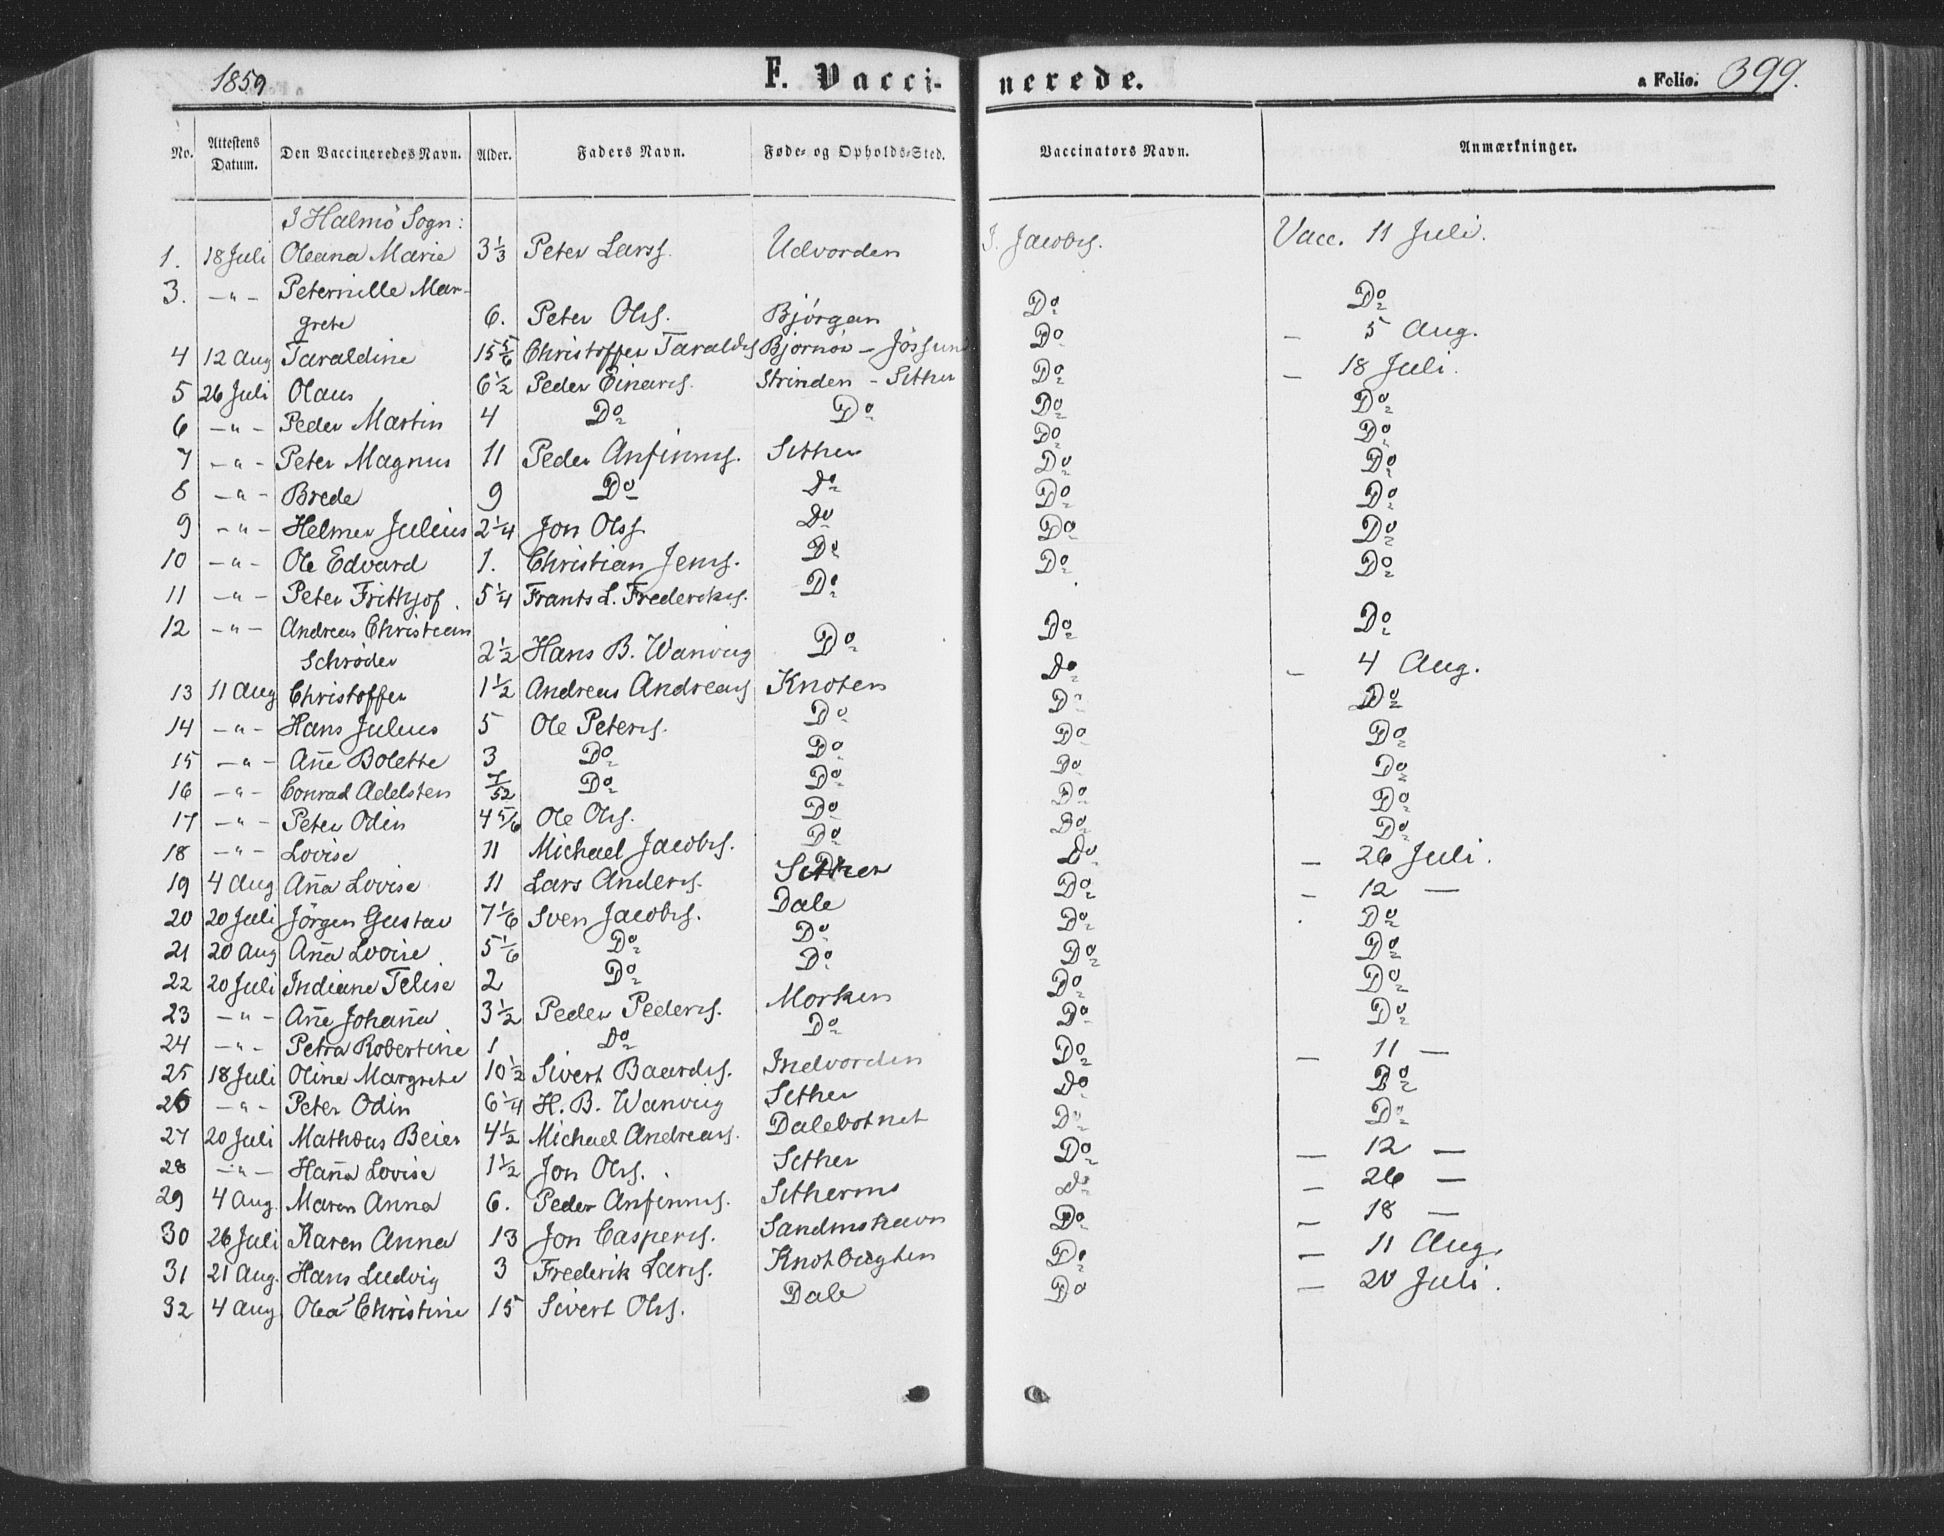 1859 F. Vacci- nerede. a Folio. 399.
No. Attestens Datum. Den Vaccineredes Navn. Alder. Faders Navn. Føde- og Opholds-Sted. Vaccinators Navn. Anmærkninger.
I Halmö Sogn:
1. 18 Juli Oleana Marie 3 1/3 Peter Larss. Udvorden J. Jacobs. Vacc. 11 Juli.
3. -"- Peternille Mar-
grete 6. Peter Ols. Bjørgan Do Do
4 12 Aug Taraldine 15 5/6 Christoffer Taralds Bjørnör - Jössund Do - 5 Aug.
5 26 Juli Olaus 6 1/2 Peder Einars. Strinden - Sether Do - 18 Juli.
6 -"- Peder Martin 4 Do Do Do Do
7 -"- Peter Magnus 11 Peder Anfinns. Sether Do Do
8 -"- Brede 9 Do Do Do Do
9 -"- Helmer Julius 2 1/4 Jon Olss Do Do Do
10 -"- Ole Edvard 1. Christian Jens. Do Do Do
11 -"- Peter Frithjof. 5 1/4 Frants L. Frederiks. Do Do Do
12 -"- Andreas Christian
Schrøder 2 1/2 Hans B. Wanvig Do Do Do
13 11 Aug Christoffer 1 1/2 Andreas Andreas Knoten Do - 4 Aug.
14 -"- Hans Julius 5 Ole Peters. Do Do Do
15 -"- Ane Bolette 3 Do Do Do Do
16 -"- Conrad Adelsten 7/52 Do Do Do Do
17 -"- Peter Odin 4 5/6 Ole Ols. Do Do Do
18 -"- Lovise 11 Michael Jacobs. Do Do Do
19 4 Aug Ana Lovise 11 Lars Anders. Sether Do - 26 Juli.
20 20 Juli Jörgen Gustav 7 1/6 Sven Jacobs. Dale Do - 12 -
21 20 Aug Ana Lovise 5 1/6 Do Do Do Do
22 20 Juli Indiane Telise 2 Do Do Do Do
23 -"- Ane Johana 3 1/2 Peder Peders. Morken Do Do
24 -"- Petra Robertine 1 Do Do Do Do
25 18 Juli Oline Margrete 10 1/2 Sivert Baards. Indvorden Do - 11 -
26 -"- Peter Odin 6 1/4 H. B. Wanvig Sether Do Do
27 20 Juli Mathæus Beier 4 1/2 Michael Andreas. Dalebotnet Do Do
28 -"- Hana Lovise 1 1/2 Jon Ols. Sether Do - 12 -
29 4 Aug. Maren Anna 6. Peder Anfinns. Do - 26 -
30 26 Juli Karen Anna 13 Jon Caspers. Do - 18 -
31 21 Aug. Hans Ludvig 3 Frederik Lars. Do - 11 Aug.
32 4 Aug Olea Christine 15 Sivert Ols. Dale Do - 20 Juli.